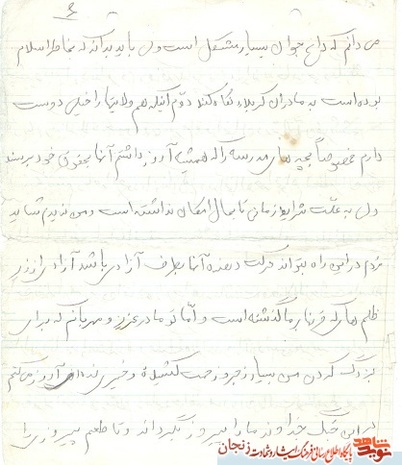 ۶
می دانم که داغ جوان بسیار مشکل است ولی باید بدانند که بخاطر اسلام
بوده است به مادران کربلا نگاه کنند دوم آنکه هم ولایتیها را خیلی دوست
دارم خصوصاً بچه های مدرسه را که همیشه آرزو داشتم آنها بحقوق خود برسند
ولی به علت شرایط زمانی تا بحال امکان نداشته است و من ندیدم شاید
مردم در این راه بتواند حرکت دهنده آنها بطرف آزادی باشد آزادی از زیر
ظلم هائی که قرنها بر ما گذشته است و اما تو مادر عزیز و مهربانم که برای
بزرگ کردن من بسیار زجر و زحمت کشیده و خیری ندیده ای آرزو می کنم
در این جنگ خداوند ما را پیروز بگرداند و تا طعم پیروزی را
نوید شاهد
پایگاه اطلاع رسانی فرهنگ ایثار و شهادت زنجان